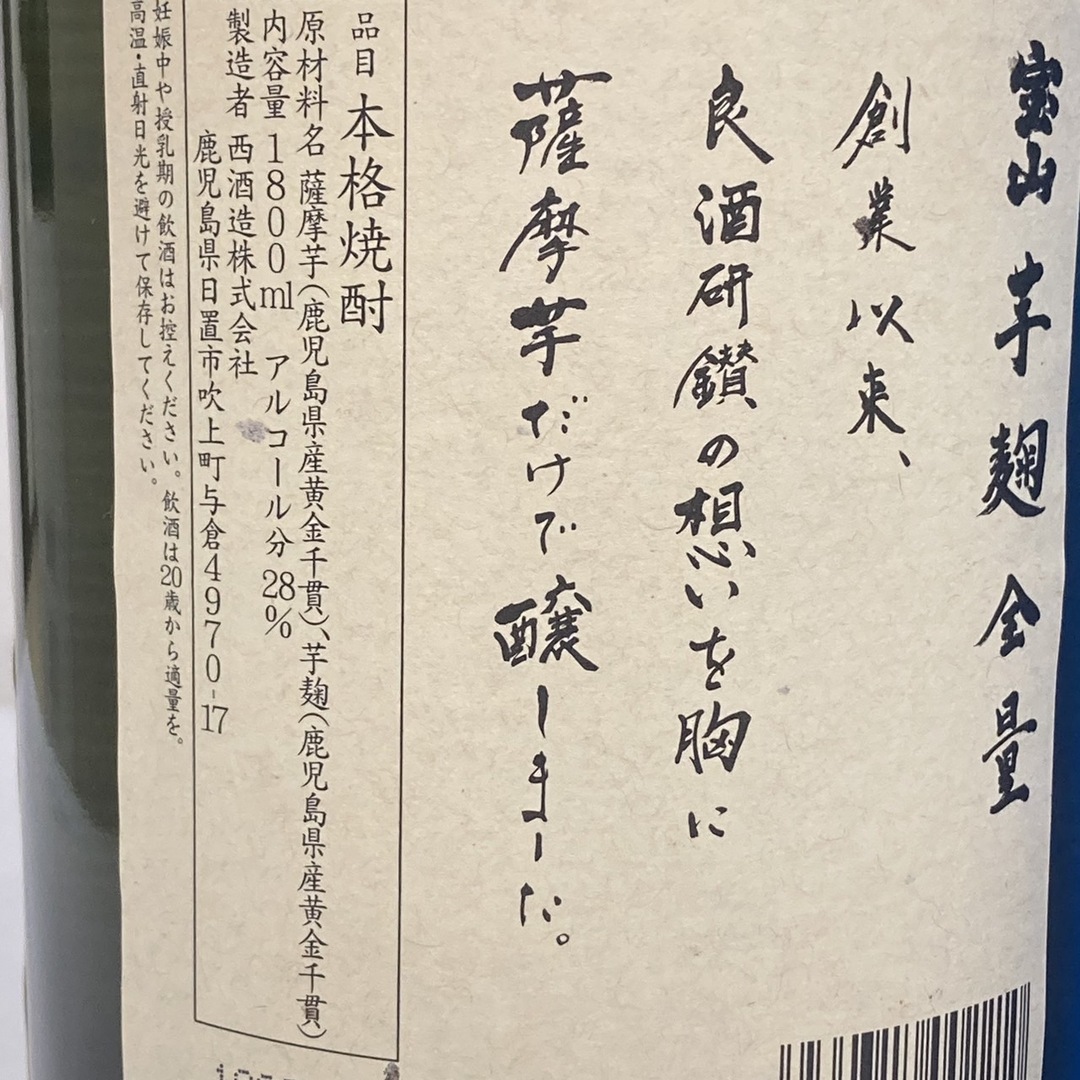 宝山芋麹全量
創業以来、
良酒研鑚の想いを胸に
薩摩芋だけで醸しました。
品目 本格焼酎
原材料名 薩摩芋(鹿児島県産黄金千貫)、芋麹(鹿児島県産黄金千貫)
内容量 1800ml アルコール分 28%
製造者 西酒造株式会社
鹿児島県日置市吹上町与倉4970-17
妊娠中や授乳期の飲酒はお控えください。飲酒は20歳から適量を。
高温・直射日光を避けて保存してください。